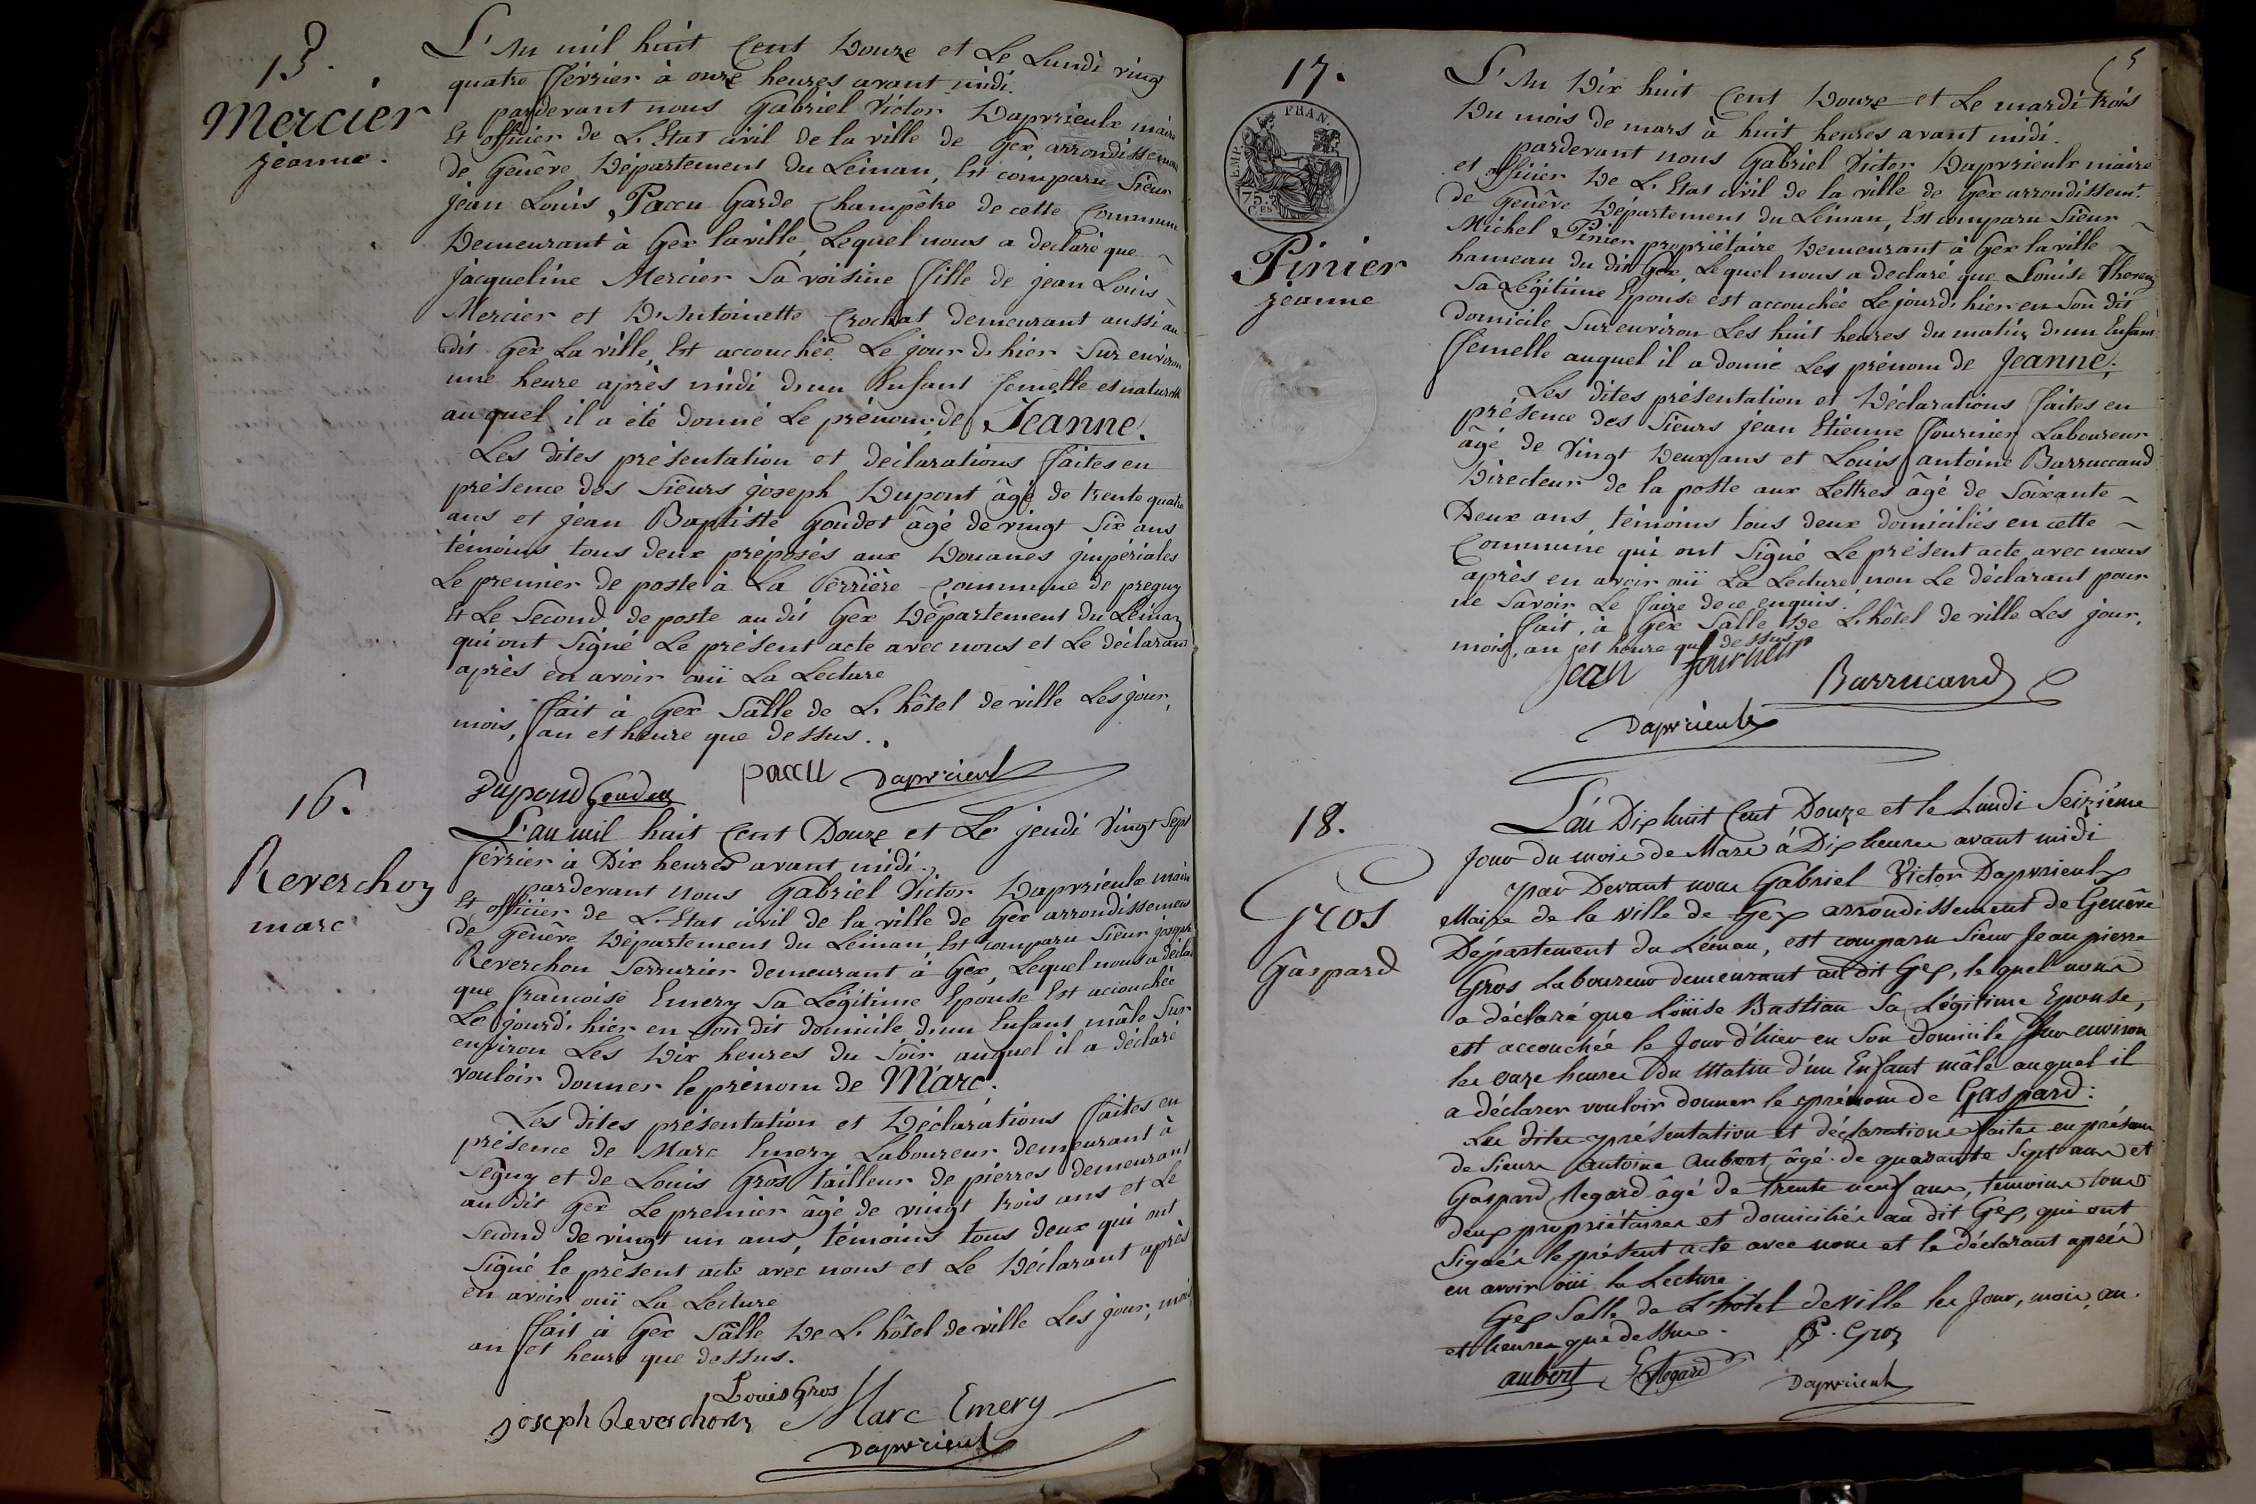 15.
Mercier
jeanne.
L'An mil huit Cent Douze et Le Lundi vingt
quatre février à onze heures avant midi.
pardevant nous Gabriel Victor Dapvrieulx maire
Et officier de L'Etat civil de la ville de Gex arrondissement
de Genêve Département du Léman, Est comparu Sieur
jean Louis Paccu Garde Champêtre de cette Commune
Demeurant à Gex laville, Lequel nous a declaré que
jacqueline Mercier Sa voisine fille de jean Louis
Mercier et D'Antoinette Crochat demeurant aussi au
dit Gex La ville, Est accouchée Le jour d'hier Sur environ
une heure après midi d'un Enfant femelle et naturelle
auquel il a été donné Le prénom de Jeanne.
Les dites présentation et déclarations faites en
présence des Sieurs joseph Dupont âgé de trente quatre
ans et jean Baptiste Goudet âgé de vingt Six ans
témoins tous deux préposés aux Douanes impériales
Le premier de poste à La Perrière Commune de pregny
Et Le Second de poste au dit Gex Département du Léman
qui ont Signé Le présent acte avec nous et Le déclarant
après en avoir ouï La Lecture
fait à Gex Sâlle de L'hôtel de ville Les jour,
mois, an et heure que dessus.
Dupond Goudet paccu Dapvrieulx
16.
Reverchon
marc
L'an mil huit Cent Douze et Le jeudi Vingt Sept
février à Dix heures avant midi.
pardevant nous Gabriel Victor Dapvrieulx maire
Et officier de L'Etat civil de la ville de Gex arrondissement
de Genêve Département du Leman Est comparu Sieur joseph
Réverchon Serrurier demeurant à Gex, Lequel nous a déclaré
que francoise Emery Sa Légitime Epouse Est accouchée
Le jourd'hier en Son dit domicile d'un Enfant mâle Sur
environ Les Dix heures du Soir auquel il a déclaré
vouloir donner le prénom de Marc.
Les dites présentation et Déclarations faites en
présence de Marc Emery Laboureur demeurant à
Segny et de Louis Gros tailleur de pierres demeurant
au dit Gex Le premier âgé de vingt trois ans et Le
Second de vingt un ans, témoins tous deux qui ont
Signé le présent acte avec nous et Le Déclarant après
en avoir ouï La Lecture
fait à Gex Sâlle De L'hôtel de ville Les jour, mois
an et heure que dessus.
Louis Gros
joseph Reverchon Marc Emery
Dapvrieulx
5
17.
FRAN.
EMP.
75.
CES
Pinier
jeanne
L'An Dix huit Cent Douze et Le mardi trois
Du mois de mars à huit heures avant midi.
pardevant nous Gabriel Victor Dapvrieulx maire
et officier De L'Etat civil de la ville de Gex arrondissemt.
de Genêve Département du Léman, Est comparu Sieur
Michel Pinier propriétaire Demeurant à Gex la ville
hameau du dit Gex, Lequel nous a declaré que Louise
Sa Légitime Epouse est accouchée Le jourd'hier en Son dit
domicile Sur environ Les huit heures du matin d'un Enfant
femelle auquel il a donné Les prénom de Jeanne.
Les dites présentation et Déclarations faites en
présence des Sieurs jean Etienne fournier Laboureur
âgé de Vingt Deux ans et Louis antoine Barruccand
Directeur de la poste aux Lettres âgé de Soixante
Deux ans, témoins tous deux domiciliés en cette
Commune qui ont Signé Le présent acte avec nous
après en avoir ouï La Lecture, non Le déclarant pour
ne Savoir Le faire de ce enquis.
fait à Gex Salle De L'hôtel de ville Les jour,
mois, an et heure que dessus
jean fournier Barrucand
Dapvrieulx
18.
Gros
Gaspard
L'an Dix huit Cent Douze et le Lundi Seizième
Jour du mois de Mars à Dix heures avant midi
par Devant nous Gabriel Victor Dapvrieulx
Maire de la ville de Gex arrondissement de Genêve
Département du Léman, est comparu Sieur Jean pierre
Gros Laboureur demeurant au dit Gex, lequel nous
a déclaré que Louïse Bastian Sa Légitime Epouse,
est accouchée le Jour d'hier en Son Domicile Sur environ
les onze heures Du Matin d'un Enfant mâle auquel il
a déclarer vouloir donner le prénom de Gaspard:
Les dites présentation et déclarations faites en présence
de Sieurs Antoine Aubert, âgé de quarante Sept ans et
Gaspard Regard âgé de trente neuf ans, temoins tous
deux propriétaires et domiciliés au dit Gex, qui ont
Signés le présent acte avec nous et le déclarant après
en avoir ouï la Lecture.
Gex Salle de L'hôtel de Ville les Jour, mois, an
et heures que dessus.
P. Gros
aubert Regard
Dapvrieulx